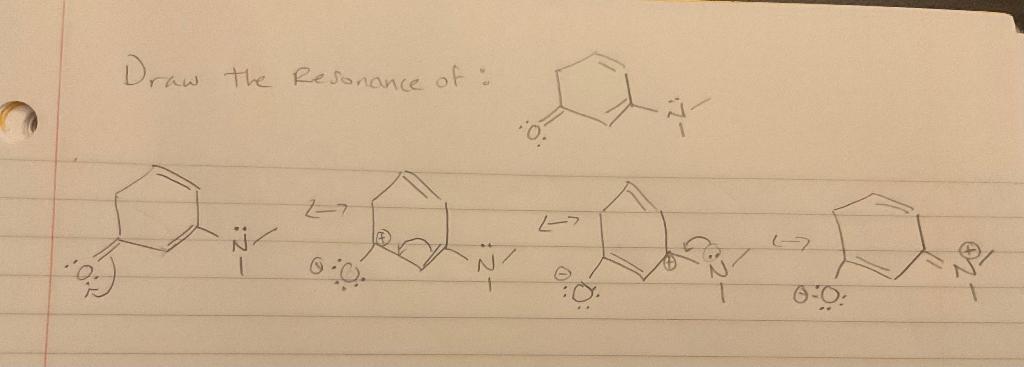 Draw the Resonance of :
:O: N
:O: N ←→ ⊕ ⊖ :O: N ←→ ⊖ :O: ⊕ N ←→ ⊖ :O: N ⊕